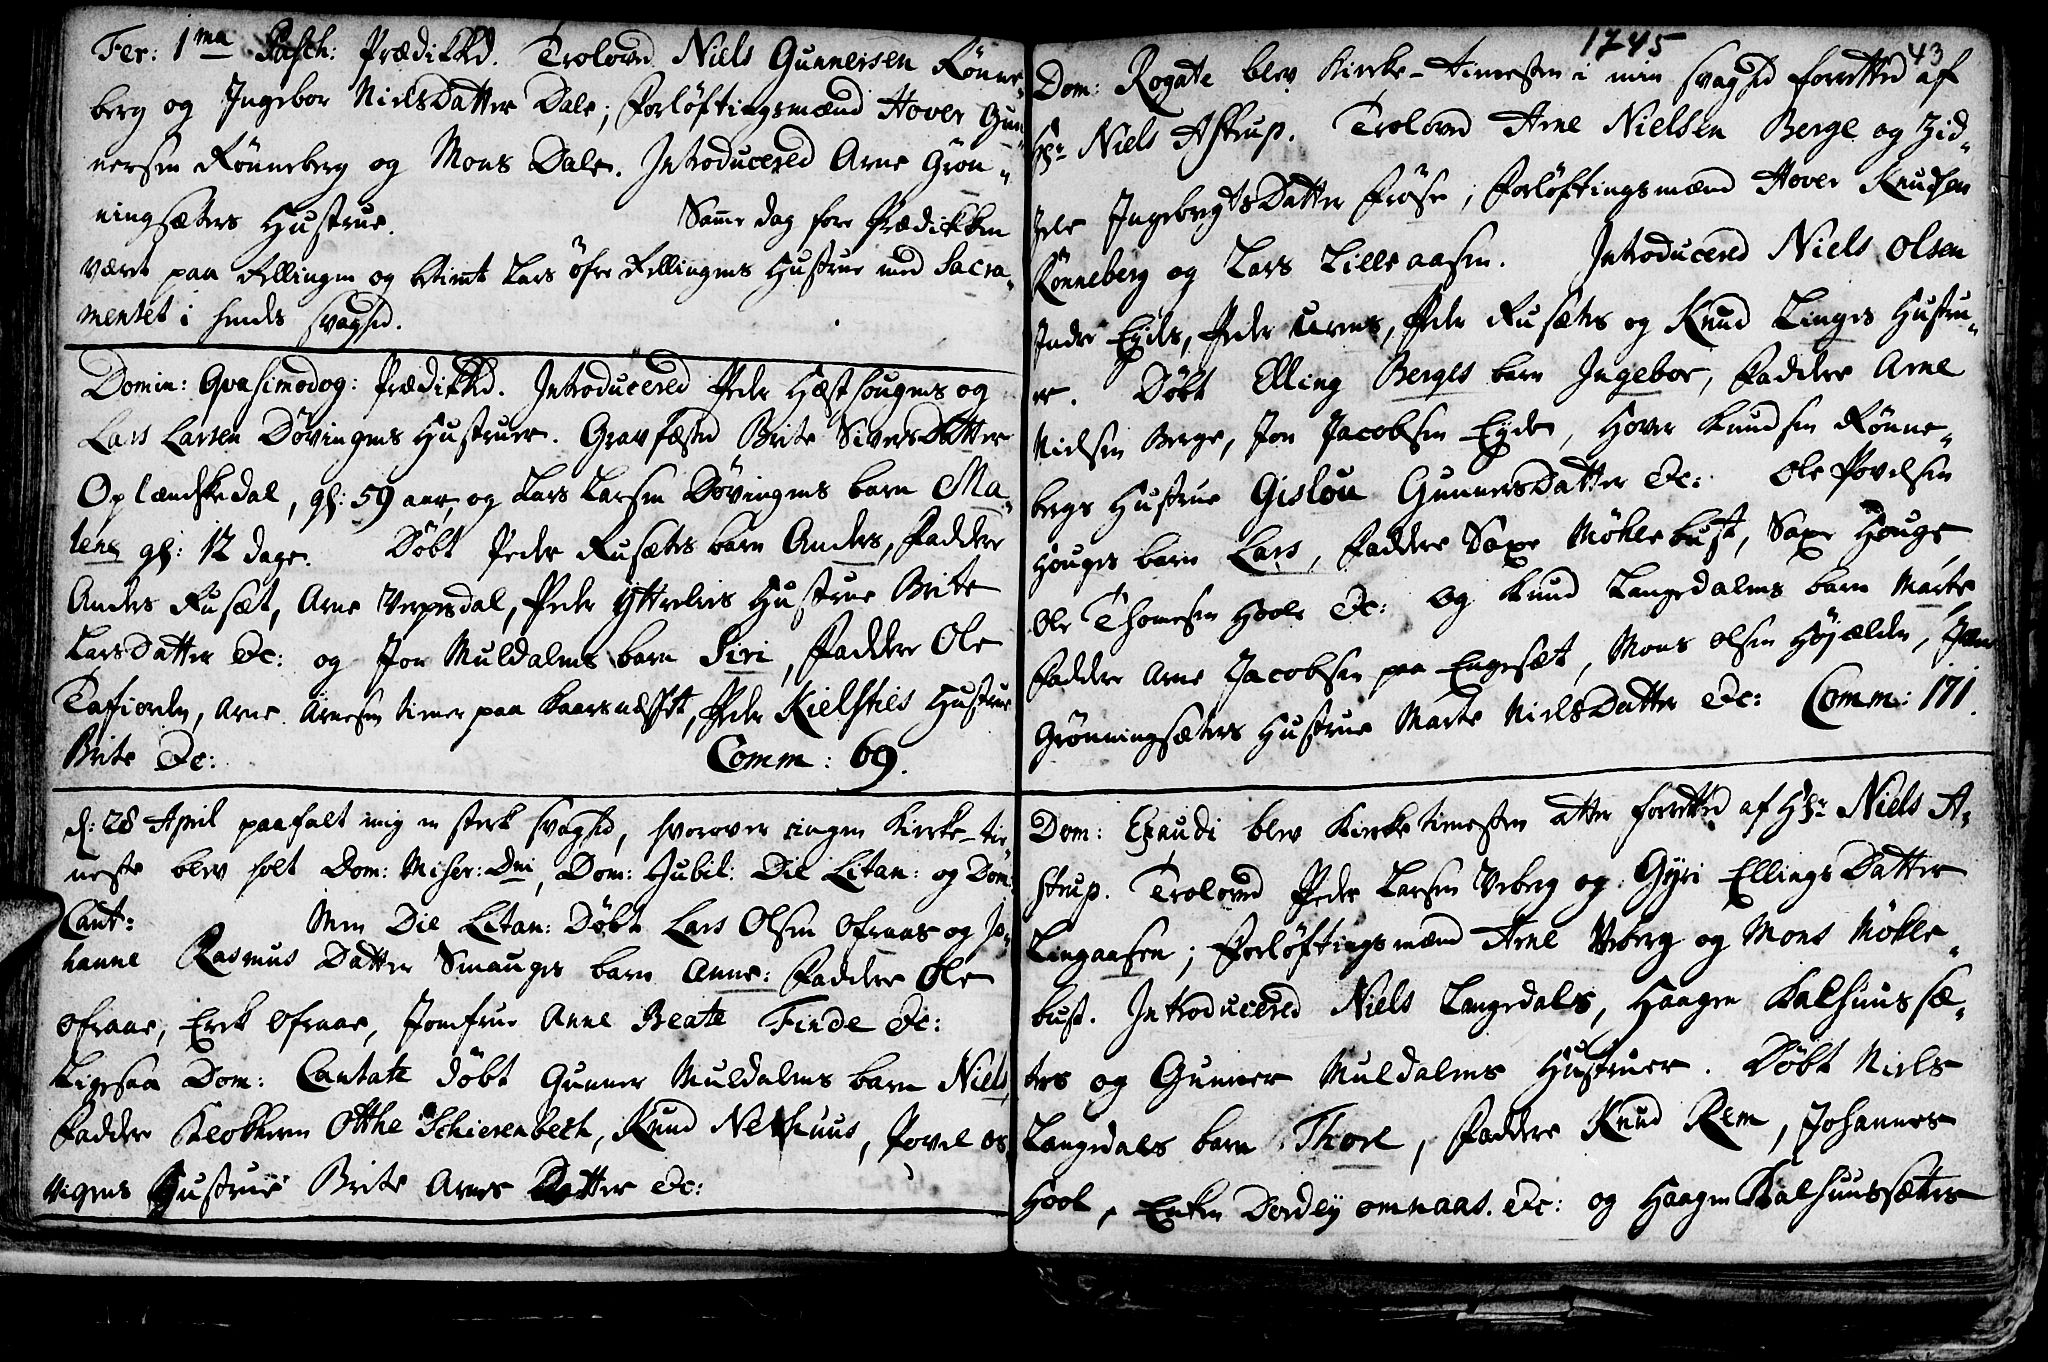 Fer: 1ma Pasch: Prædikked. Trolovet Niels Gunnersen Rönne-
berg og Ingebor NielsDatter Dale; Forlöftingsmænd Hover Gun-
nersen Rönneberg og Mons Dale. Introducered Arne Grön-
ningsæters Hustrue. Samme dag före Prædikken
været paa Fellingen og betient Lars öfre Fellingens Hustrue med Sacra-
mentet i hendes svaghed.
Domin: Qvasimodog: Prædikked. Introducered Peder Hæsthougens og
Lars Larsen Dövingens Hustruer. Gravfæsted Brite SiversDatter
Oplændskedal, gl: 59 aar, og Lars Larsen Dövingens barn Ma-
lene gl: 12 dage. Döbt Peder Rusæts barn Anders, Faddere
Anders Rusæt, Arne Verpesdal, Peder Yttrelies Hustrue Brite
LarsDatter &c: og Jon Muldalens barn Siri, Faddere Ole
Tafiorden, Arne Arnesen tiener paa Kaarsnæsset, Peder Kielsties Hustrue
Brite &c: Comm: 69.
d: 28 April paafalt mig en sterk svaghed, hvorover ingen Kircke-tie-
neste blev holt Dom: Miser: Dni, Dom: Jubil: Die Litan: og Dom:
Cant: Men Die Litan: Döbt Lars Olsen Ofraas og Jo-
hanne RasmusDatter Smauges barn Anne: Faddere Ole
Ofraas, Erck Ofraas, Jomfrue Anne Beate Finde &c:
Ligesaa Dom: Cantate döbt Gunner Muldalens barn Niels,
Faddere Klokkeren Otthe Schierenbech, Knud Nerhuus, Povel os
vigens Hustrue Brite ArnesDatter &c:
1745 43
Dom: Rogate blev Kircke-tienesten i min svaghed forrettet af
Hr Niels Astrup. Trolovet Arne Nielsen Berge og Zid-
zele IngebrigtsDatter Fröse; Forlöftingsmænd Hover Knudsen
Rönneberg og Lars Lilleaasen. Introducered Niels Olsen
Indre Eyds, Peder Urens, Peder Rusæts og Knud Linges Hustru-
er. Döbt Elling Berges barn Ingebor, Faddere Arne
Nielsen Berge, Jon Jacobsen Eyde, Hover Knudsen Rönne-
bergs Hustrue Gislou GunnersDatter &c: Ole Povelsen
Houges barn Lars, Faddere Saxe Möklebust, Saxe Houge
Ole Thomesen Hoole &c: og Knud Langdalens barn Marte,
Faddere Arne Jacobsen paa Engesæt, Mons Olsen Höjælden,
Grönningsæters Hustrue Marte NielsDatter &c: Comm: 171.
Dom: Exaudi blev Kircketienesten atter forrettet af Hr Niels A-
strup. Trolovet Peder Larsen Vrberg og Gyri EllingsDatter
Lingaasen; Forlöftingsmænd Arne Vrberg og Mons Mökle-
bust. Introducered Niels Langdals, Haagen Kalhuussæ-
ters og Gunner Muldalens Hustruer. Döbt Niels
Langdals barn Thore, Faddere Knud Rem, Johannes
Hool, Enken Dordej omnaas. &c: og Haagen Kalhuussæters